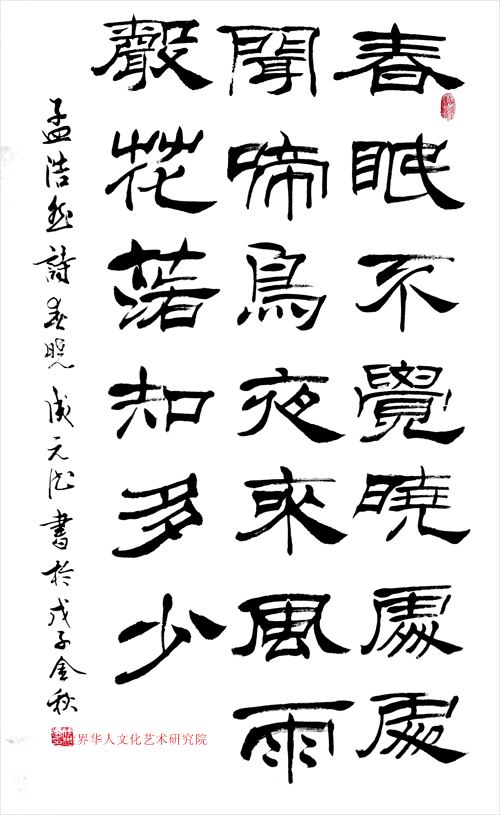 春眠不覺曉處處
聞啼鳥夜來風雨
聲花落知多少
孟浩然詩春晓成元書於戊子金秋
界华人文化艺术研究院